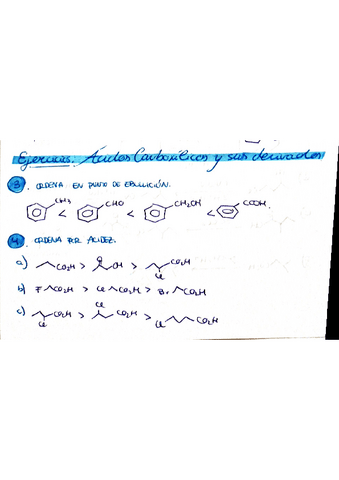 Ejercicios: Ácidos Carboxílicos y sus derivados
3. ORDENA EN PUNTO DE EBULLICIÓN.
CH3 < CHO < CH2OH < COOH.
4. ORDENA POR ACIDEZ.
a) CO2H > O OH > CO2H Cl
b) F CO2H > Cl CO2H > Br CO2H
c) CO2H Cl > Cl CO2H > Cl CO2H